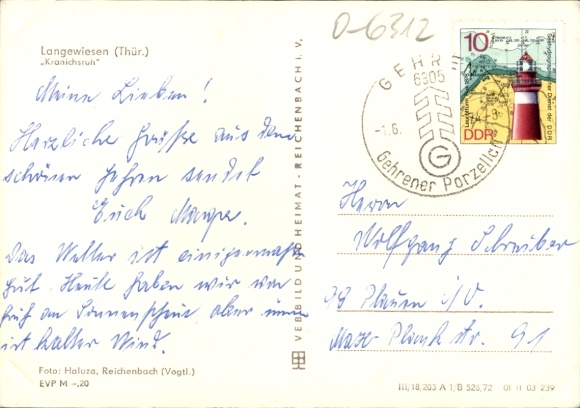 O-6312
Langewiesen (Thür.)
„Kranichsruh"
Meine Lieben!
Herzliche Grüße aus dem
schönen Gehren sendet
Euch
Das Wetter ist einigermaßen
gut. Heute haben wir von
früh an Sonnenschein aber
ist kalter Wind.
Foto: Haluza, Reichenbach (Vogtl.)
EVP M –,20
VEB BILD UND HEIMAT · REICHENBACH I. V.
GEHREN
6305
-1.6.
G
Gehrener Porzellan
10
Seehydrographischer Dienst der DDR
DDR
Herrn
Wolfgang Schreiber
99 Plauen i/V.
Max-Planck Str. 91
III/18/203 A 1/B 526/72 01 11 03 239